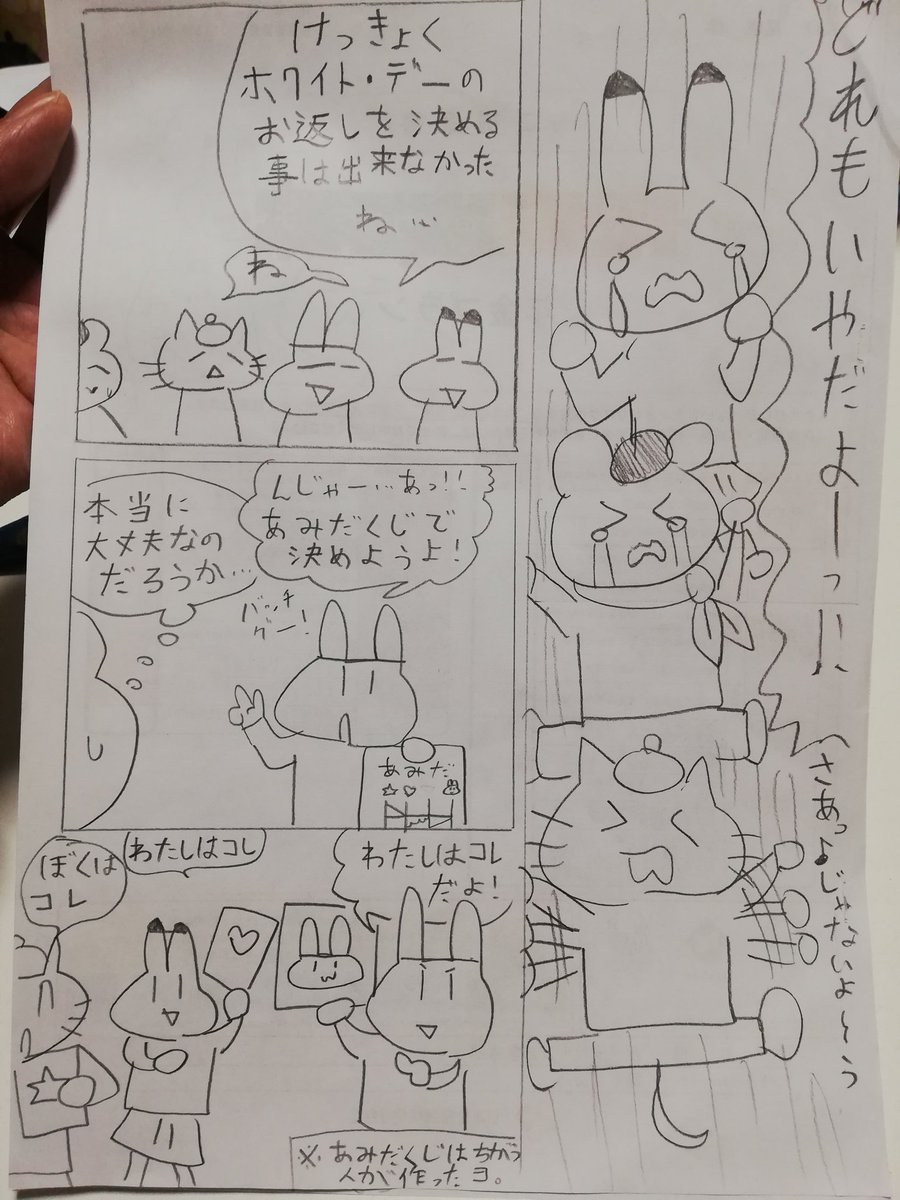 どれもいやだよーっ!!
(さあっ♪じゃないよ〜う
けっきょく
ホワイト・デーの
お返しを決める
事は出来なかった
ね…
ね
んじゃー…あっ!!
あみだくじで
決めようよ!
本当に
大丈夫なの
だろうか…
バッチ
グー!
あみだ
わたしはコレ
だよ!
わたしはコレ
ぼくは
コレ
※あみだくじはちがう
人が作ったヨ。